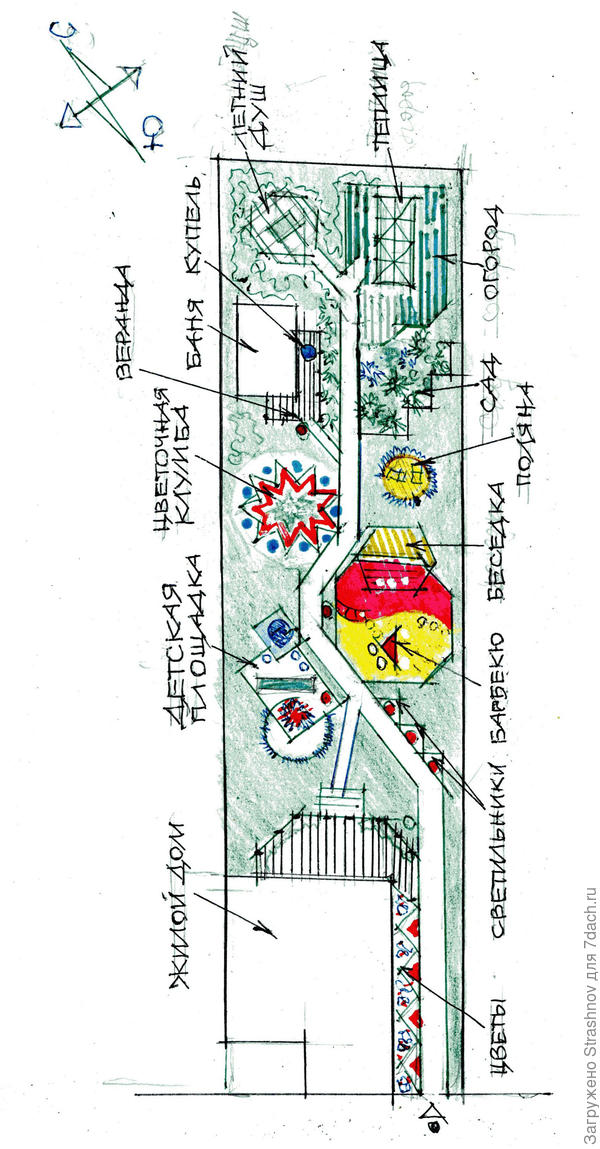 С
Ю
ЖИЛОЙ ДОМ
ДЕТСКАЯ
ПЛОЩАДКА
ЦВЕТОЧНАЯ
КЛУМБА
ВЕРАНДА
БАНЯ
КУПЕЛЬ
ЛЕТНИЙ
ДУШ
ТЕПЛИЦА
ЦВЕТЫ
СВЕТИЛЬНИКИ
БАРБЕКЮ
БЕСЕДКА
ПОЛЯНА
САД
ОГОРОД
Загружено Strashnov для 7dach.ru